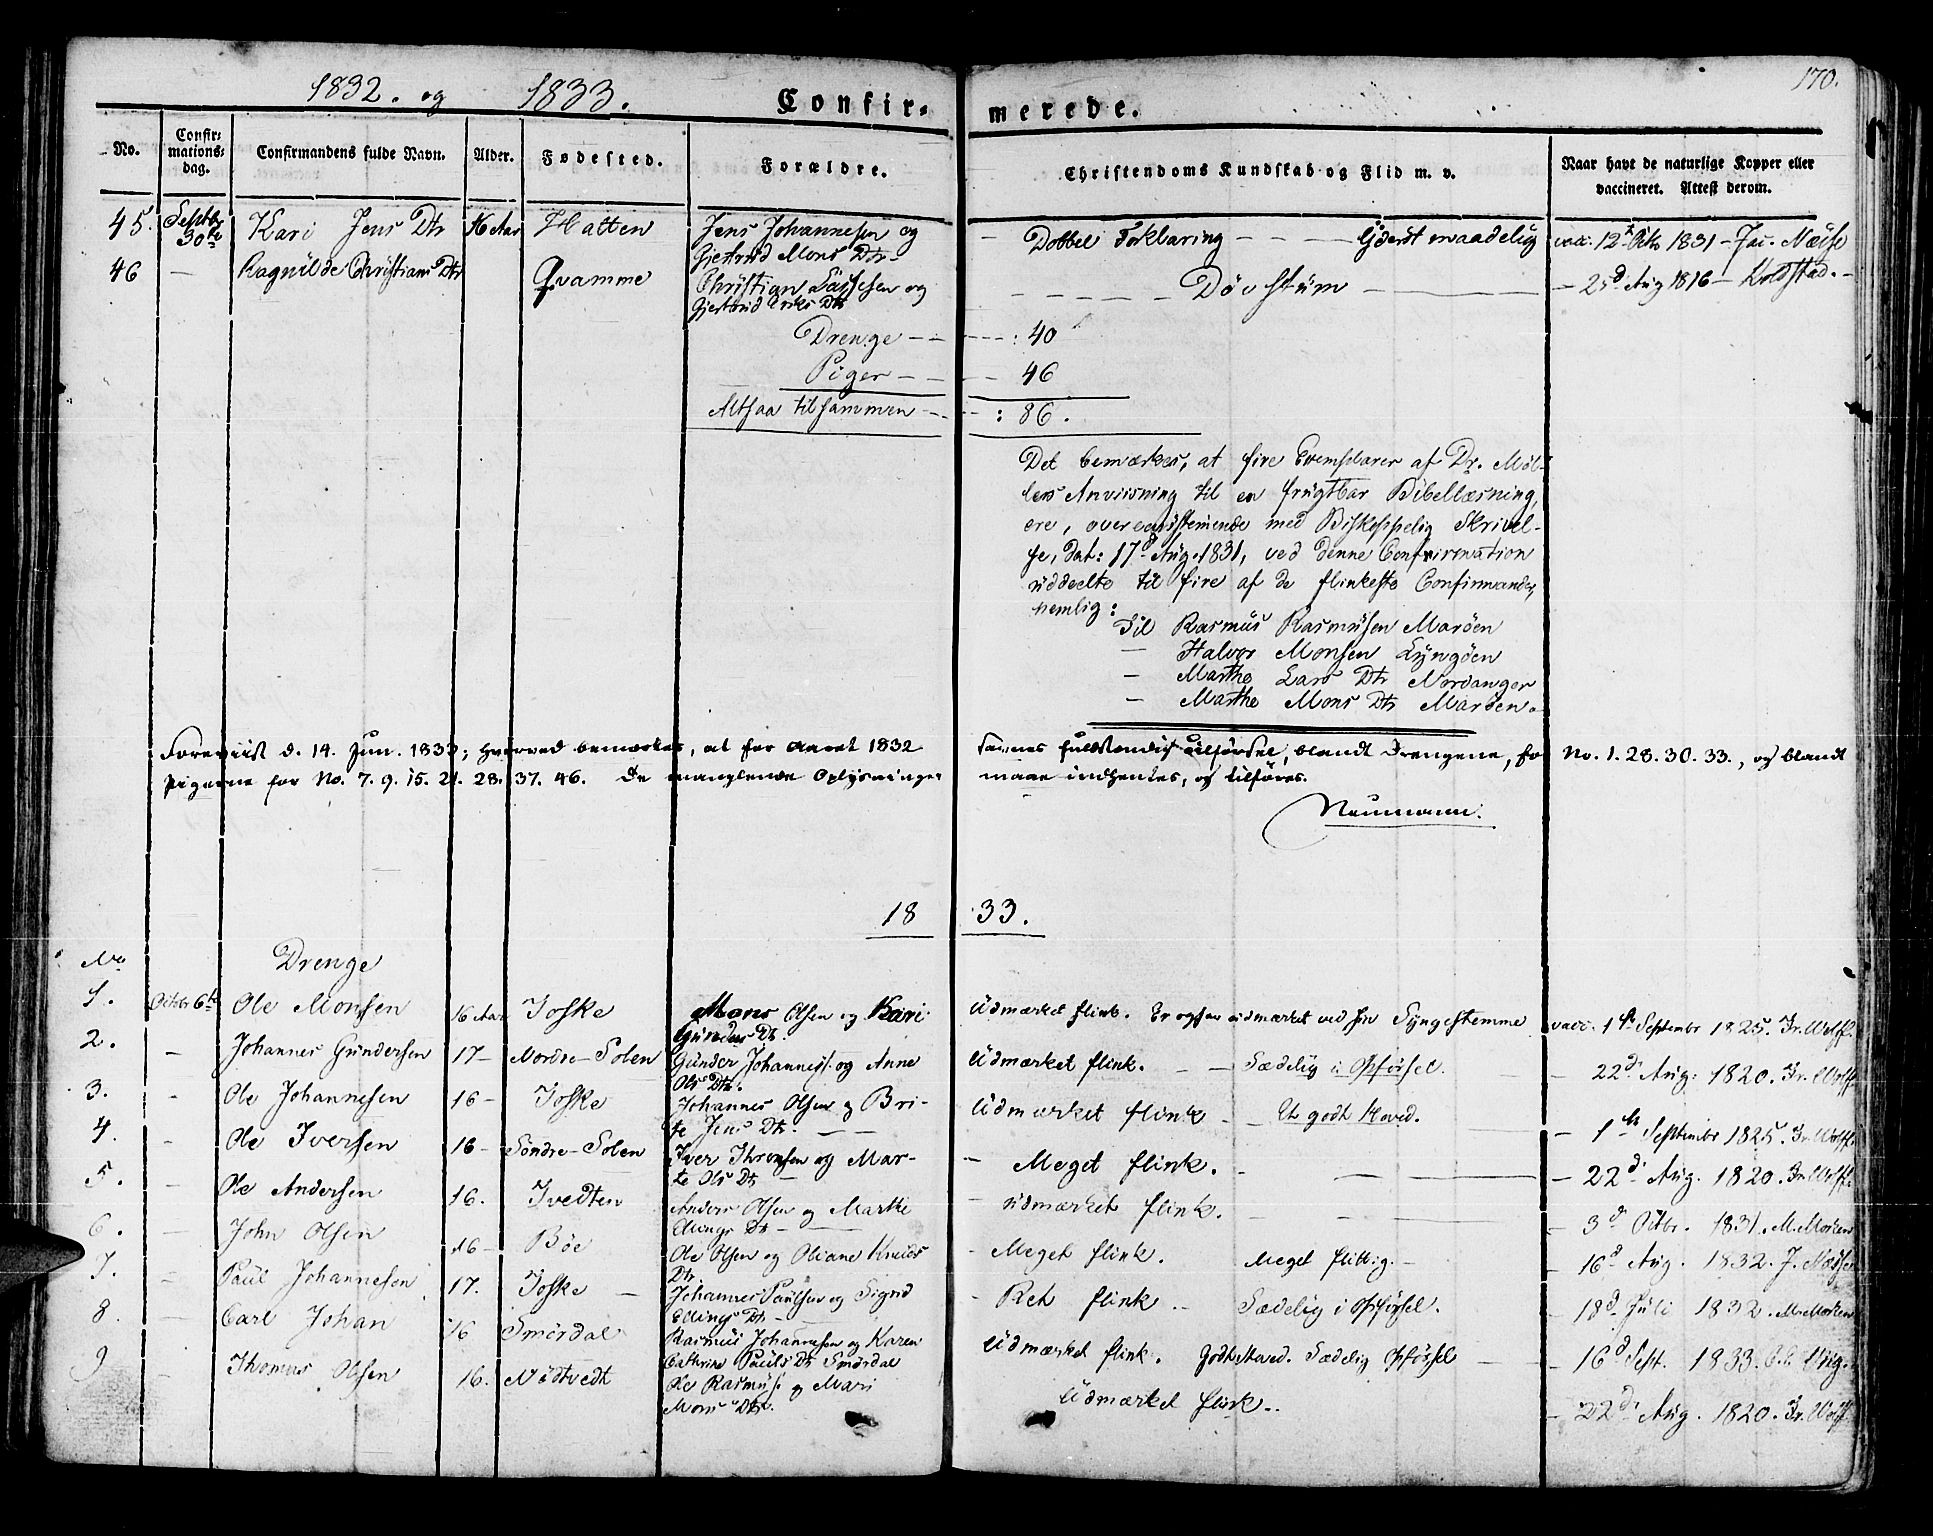 170.
1832. og 1833. Confir- merede.
No. Confir- mations- dag. Confirmandens fulde Navn. Alder. Fødested. Forældre. Christendoms Kundskab og Flid m. v. Naar havt de naturlige Kopper eller vaccineret. Attest derom.
45. Septbr 30te Kari Jens Dtr 16 Aar Hatten Jens Johannesen og Gjertrud Mons Dtr - Dobbel Forklaring - maadelig vacc. 12te Octbr 1831 - Jac. Næse
46 - Ragnilde Christians Dtr Qvamme Christian og Gjertrud Dtr Døvstum - 25d Aug 1816 - Koldstad.
Drenge - - : 40
Piger - - 46
Altsaa tilsammen - : 86.
Det bemærkes, at fire Exemplarer af Dr. Møl-
lers Anviisning til en frugtbar Bibellæsning,
ere, overeenstemmende med Biskoppelig Skrivel-
se, Dat: 17d Aug. 1831, ved denne Confirmation
uddeelte til fire af de flinkeste Confirmander,
nemlig:
Til Rasmus Rasmusen Marøen
- Halvor Monsen Lyngøen
- Marthe Lars Dtr Nordanger
- Marthe Mons Dtr Marøen.
Foreviist d. 14. Jun. 1833; hvorved bemærkes, at for Aaret 1832 savnes fuldstændig Tilførsel, blandt Drengene, for No. 1. 28. 30. 33., og blandt
Pigerne for No. 7. 9. 15. 21. 28. 37. 46. De manglende Oplysninger maae indhentes, og tilføres.
Neumann.
18 33.
No Drenge
1. Octobr 6te Ole Monsen 16 Aar Joske Mons Olsen og Kari Gunders Dtr. Udmærket flink. Er ogsaa udmærket ved sin Syngestemme vacc. 1ste Septembr 1825. Fr. Wolff.
2. - Johannes Gundersen 17 - Nordre-Solen Gunder Johanness. og Anne Ols Dtr. Udmærket flink. - - Sædelig i Opførsel. - 22d Aug: 1820. Fr. Wolff
3. - Ole Johannesen 16 - Joske Johannes Olsen og Bri- te Jens Dtr. - Udmærket flink - Et godt Hoved. - 1ste Septembr 1825. Fr. Wolff.
4. - Ole Iversen 16 - Søndre-Solen Iver Thronsen og Mar- te Ols Dtr - - Meget flink. - - 22d Aug. 1820. Fr. Wolff.
5. - Ole Andersen 16. Tvedten Anders Olsen og Marthe Dtr - - udmærket flink. - - 3d Octbr. 1831. M. Morken
6. - John Olsen 16 - Bøe Ole Olsen og Oliane Knuds Dtr. - Meget flink. Meget flittig. - - 16d Aug. 1832. J. Næse
7. - Paul Johannesen 17. Joske - Johannes Paulsen og Sigrid Ellings Dtr - - Ret flink - Sædelig i Opførsel. - 18d Juli 1832. M. Morken
8. - Carl Johan 16 Smørdal Rasmus Johannesen og Karen Cathrine Pauls Dtr Smørdal Udmærket flink. Godt Hoved. Sædelig Opførsel - - 16d Sept. 1833.
9 - Thomas Olsen 16. Mødtvedt Ole Rasmus: og Mari Mons Dtr. Udmærket flink.. - 22d Aug. 1820. Fr. Wolff